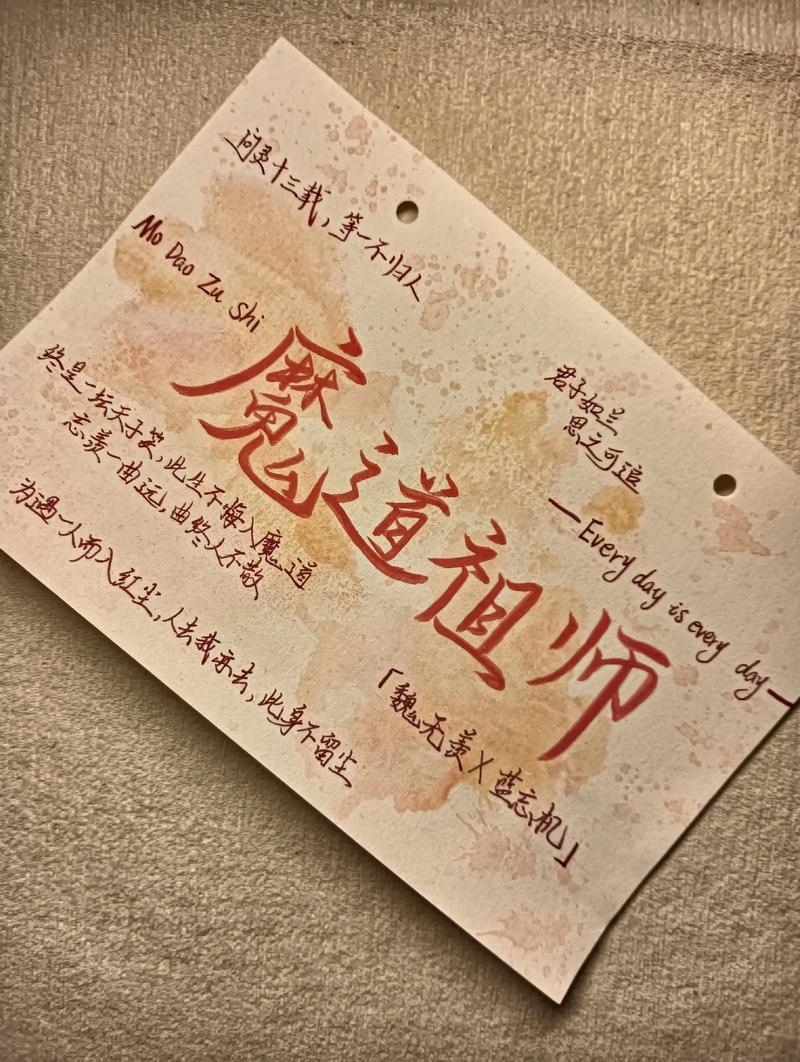 问灵十三载，等一不归人
Mo Dao Zu Shi
魔道祖师
君子如兰
思之可追
—Every day is every day—
终是一坛天子笑，此生不悔入魔道
忘羡一曲远，曲终人不散
为遇一人而入红尘，人去我亦去，此身不留尘
「魏无羡X蓝忘机」